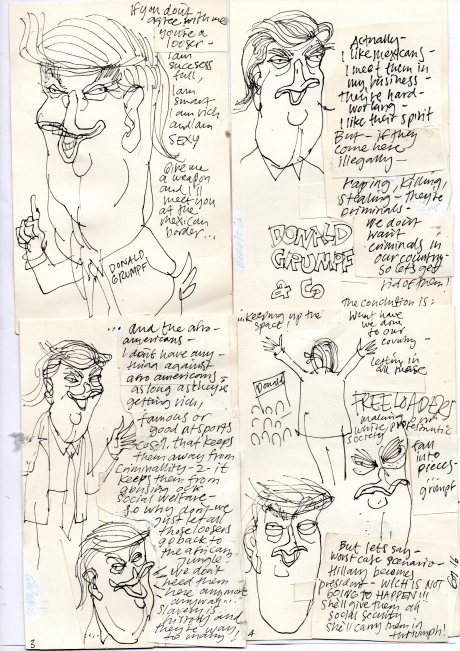 If you don't
agree with me
you're a
looser -
I am
sucsess
full,
I am
smart
I am rich
and I am
SEXY
Give me
a weapon
and I'll
meet you
at the
Mexican
border...
DONALD
GRUMPF
Actually -
I like mexicans -
I meet them in
my business -
they're hard-
working -
I like their spirit
But - if they
come here
illegally -
raping, killing,
stealing - they're
criminals -
we don't
want
criminals in
our country -
so let's get
rid of them!
DONALD
GRUMPF
& Co
The conclusion is:
... and the afro-
americans -
I don't have any-
thing against
afro americans -
as long as they're
getting rich,
famous or
good at sports
cose 1. that keeps
them away from
criminallity - 2 - it
keeps them from
abusing our
social welfare -
so why don't we
just let all
those loosers
go back to
the african
jungle?
We don't
need them
here anymore
anyway...
Slavery is
history and
they're way
to many!
3
...keeping up the
space!
What have
we done
to our
country -
letting in
all these
Donald
FREELOADERS
making
white, protestantic
society
fall
into
pieces...
...grumpf
But lets say -
worst case scenario -
Hillary become
president - WICH IS NOT
GOING TO HAPPEN!!!
she'll give them all
social security
she'll carry them in
triumph!
4
16